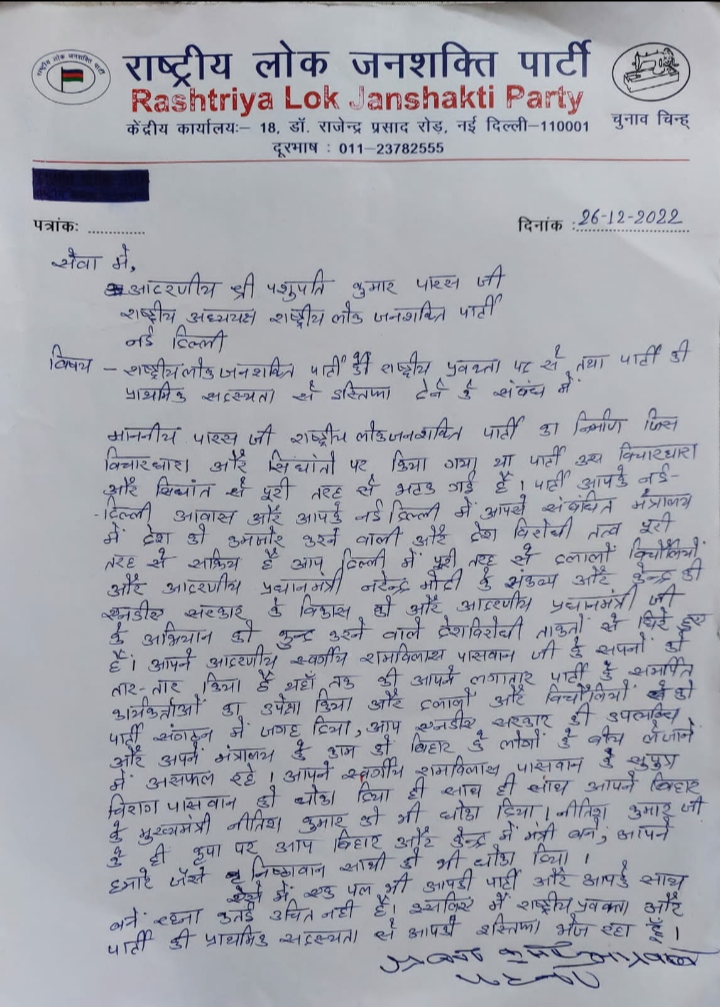 राष्ट्रीय लोक जनशक्ति पार्टी
राष्ट्रीय लोक जनशक्ति पार्टी
Rashtriya Lok Janshakti Party
केंद्रीय कार्यालयः– 18, डॉ. राजेन्द्र प्रसाद रोड़, नई दिल्ली–110001
चुनाव चिन्ह्
दूरभाष : 011–23782555
पत्रांकः ............
दिनांक : 26-12-2022
सेवा में,
आदरणीय श्री पशुपति कुमार पारस जी
राष्ट्रीय अध्यक्ष राष्ट्रीय लोक जनशक्ति पार्टी
नई दिल्ली
विषय – राष्ट्रीय लोक जनशक्ति पार्टी की राष्ट्रीय प्रवक्ता पद से तथा पार्टी की
प्राथमिक सदस्यता से इस्तिफा देने के संबंध में
माननीय पारस जी राष्ट्रीय लोकजनशक्ति पार्टी का निर्माण जिस
विचारधारा और सिधांतो पर किया गया था पार्टी उस विचारधारा
और सिधांत से पूरी तरह से भटक गई है। पार्टी आपके नई-
दिल्ली आवास और आपके नई दिल्ली में आपसे संबंधित मंत्रालय
में देश को कमजोर करने वाली और देश विरोधी तत्व पूरी
तरह से सक्रिय है आप दिल्ली में पूरी तरह से दलालो बिचौलियों
और आदरणीय प्रधानमंत्री नरेन्द्र मोदी के संकल्प और केन्द्र की
एनडीए सरकार के विकास को और आदरणीय प्रधानमंत्री जी
के अभियान को कुन्द करने वाले देशविरोधी ताकतों से घिरे हुए
है। आपने आदरणीय स्वर्गीय रामविलास पासवान जी के सपनों को
तार-तार किया है यहाँ तक की आपने लगातार पार्टी के समर्पित
कार्यकर्ताओं का उपेक्षा किया और दलालो और बिचौलियों को
पार्टी संगठन में जगह दिया, आप एनडीए सरकार की उपलब्धि
और अपने मंत्रालय के काम को बिहार के लोगों के बीच लेजाने
में असफल रहे। आपने स्वर्गीय रामविलास पासवान के सुपुत्र
चिराग पासवान को धोखा दिया ही साथ ही साथ आपने बिहार
के मुख्यमंत्री नीतिश कुमार को भी धोखा दिया। नीतिश कुमार जी
के ही कृपा पर आप बिहार और केन्द्र में मंत्री बने, आपने
हमारे जैसे निष्ठावान साथी को भी धोखा दिया।
ऐसे में एक पल भी आपकी पार्टी और आपके साथ
बने रहना कतई उचित नही है। इसलिए मैं राष्ट्रीय प्रवक्ता और
पार्टी की प्राथमिक सदस्यता से आपको इस्तिफा भेज रहा हूँ।